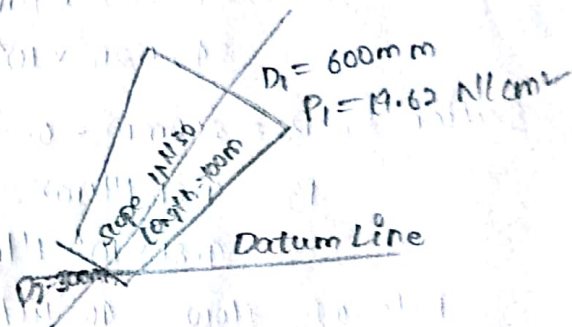 D₁ = 600mm
P₁ = 19.62 N/cm²
Slope 1 in 50
length = 100m
Datum Line
D₂ = 300mm